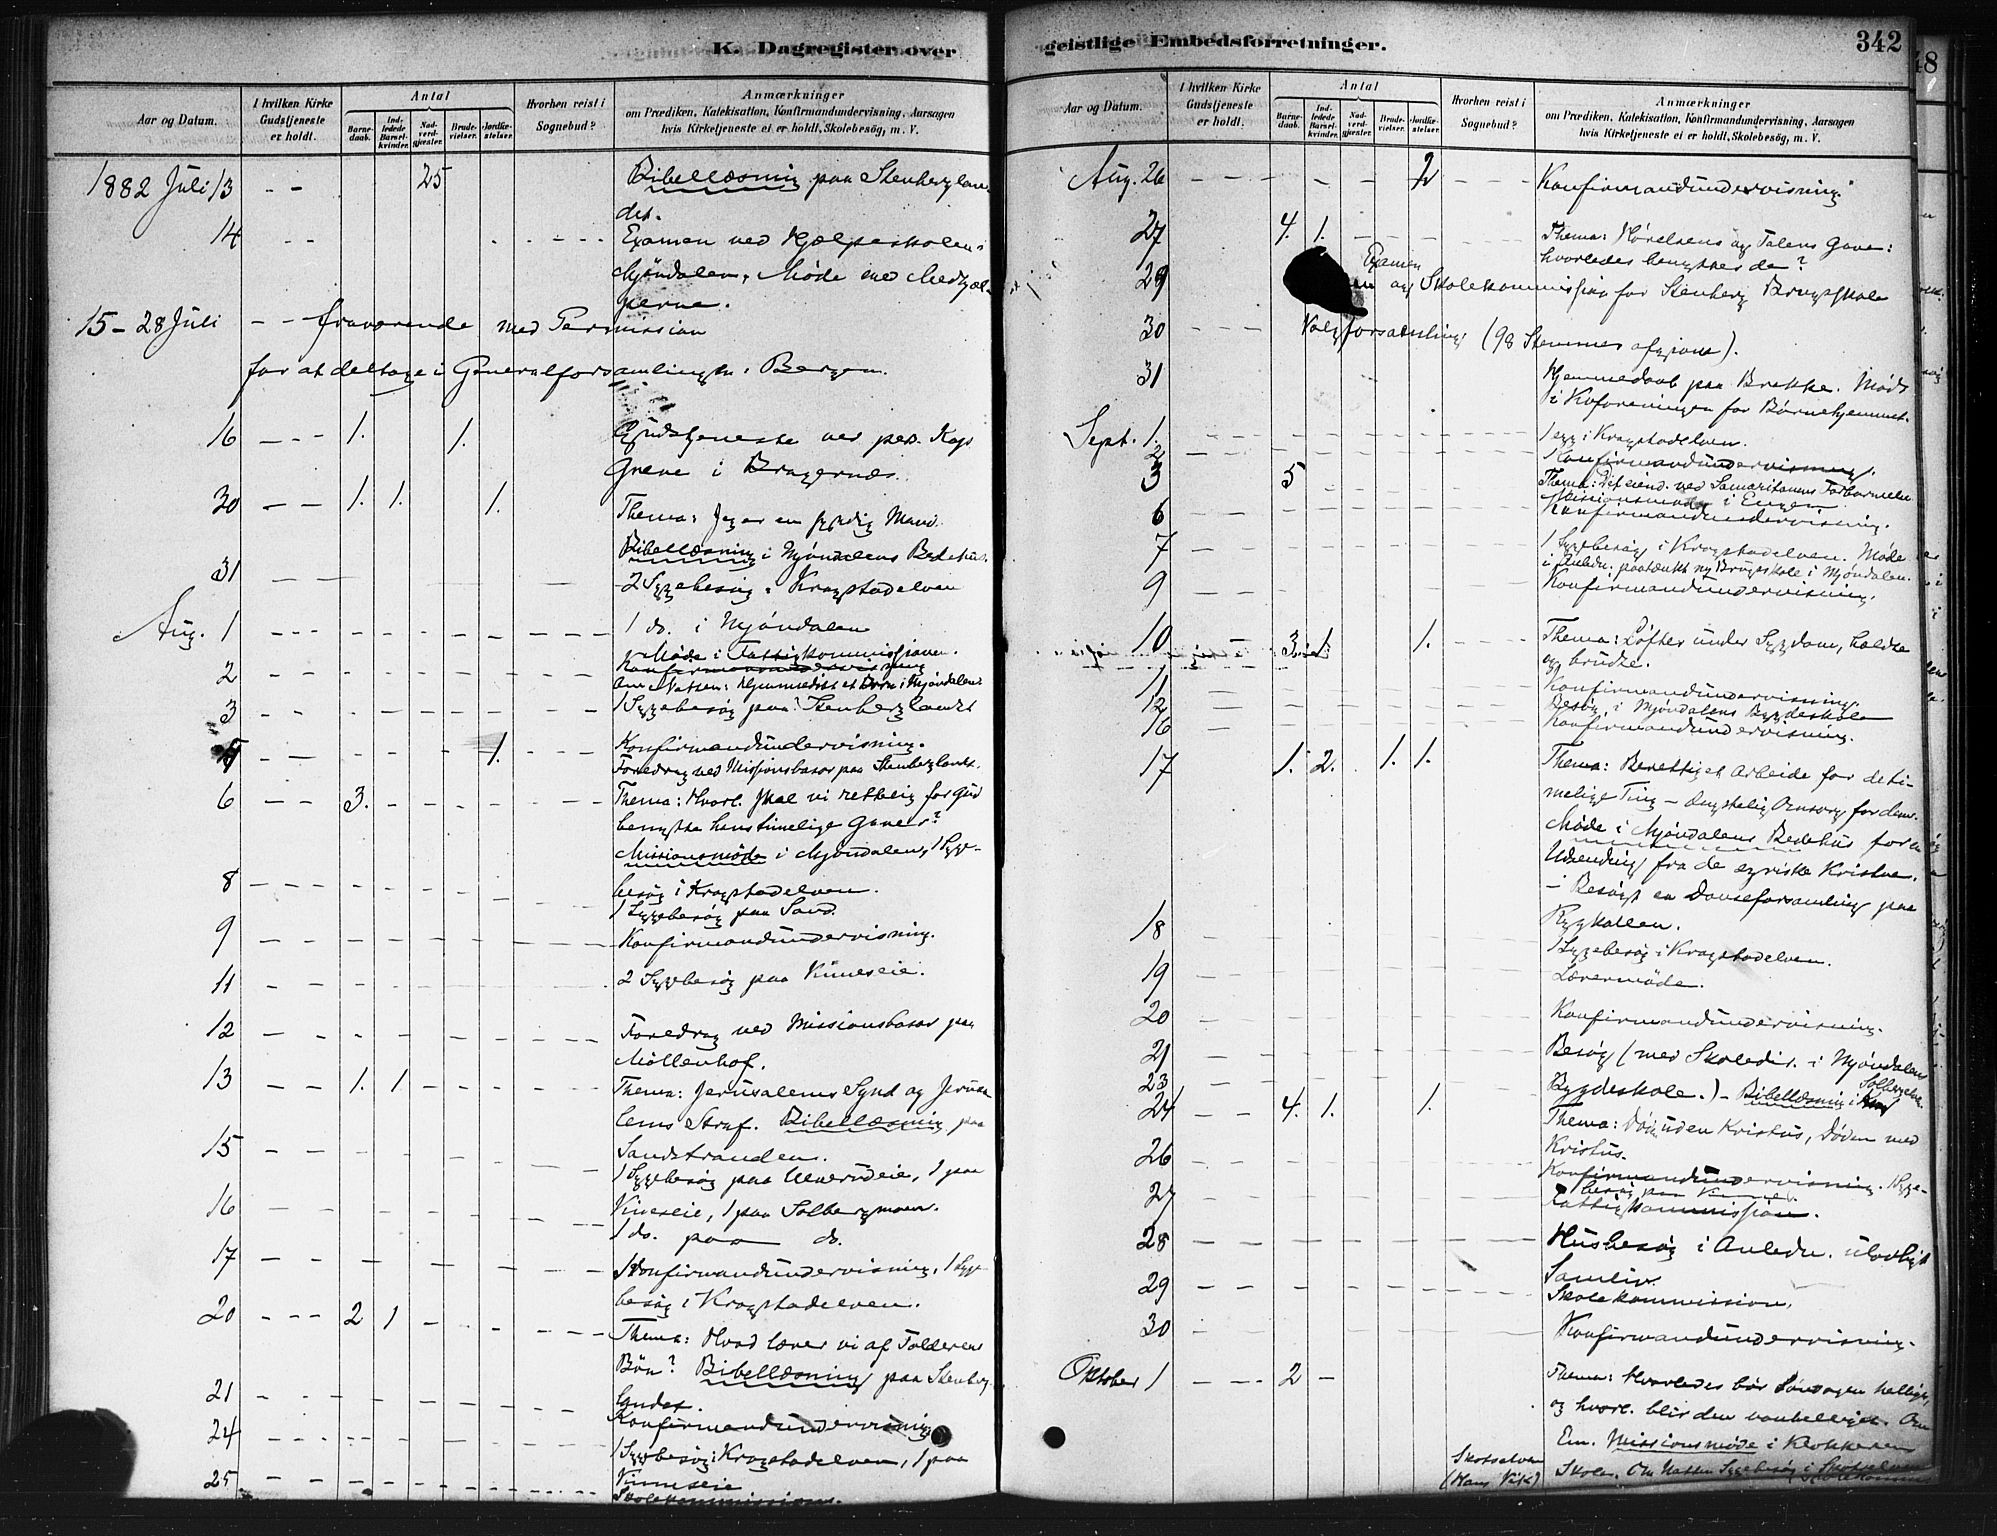 K. Dagregister over
geistlige Embedsforretninger.
342
48
Aar og Datum.
I hvilken Kirke Gudstjeneste er holdt.
Antal
Barne-daab.
Ind-ledede Barsel-kvinder.
Nad-verd-gjæster.
Brude-vielser.
Jordfæ-stelser.
Hvorhen reist i Sognebud?
Anmærkninger
om Prædiken, Katekisation, Konfirmandundervisning, Aarsagen
hvis Kirketjeneste ei er holdt, Skolebesøg, m. V.
1882 Juli 13 - - 25 Bibellæsning paa Stenberglan
det.
14 Examen ved Hjælpeskolen i
Mjøndalen, Møde med Medhjæl-
perne.
15-28 Juli - - fraværende med Permission
for at deltage i Generalforsamlingen i Bergen.
16 - - - 1. 1. Gudstjeneste ver pers. Kap.
Greve i Bragernes
30 - - 1. 1. 1.
Thema: Jeg er en
Mand.
Bibellæsning i Mjøndalens Bedehus.
31 2 Sygebesøg i Krogstadelven
Aug. 1 1 do. i Mjøndalen
Møde i Fattigkommissionen.
2 Konfirmandundervisning
Om Natten: Hjemmedøbt et Barn i Mjøndalen
3 1 Sygebesøg paa Stenberglandet
1. Konfirmandundervisning.
Foredrag ved Missionsbasar paa Stenberglandt.
6 - - 3. Thema: Hvorl. skal vi retteleig for Gud
benytte hans timelige Gaver?
Missionsmøde i Mjøndalen, 1 Syge-
8 besøg i Krogstadelven.
1 Sygebesøg paa Sand.
9 Konfirmandundervisning.
11 2 Sygebesøg paa Vineseie.
12 Foredrag ved Missionsbasar paa
Møllenhof.
13 - - 1. 1 Thema: Jerusalems Synd og Jerusa
lems Straf. Bibellæsning paa
15 Sandstranden.
1 Sygebesøg paa
1 paa
16 Vineseie, 1 paa Solbergmoen.
1 do. paa do.
17 Konfirmandundervisning, 1 Syge-
besøg i Krogstadelven.
20 - - - 2 1
Thema: Hvad lærer vi af Tolderens
Bøn? Bibellæsning paa Stenberg-
21 landet.
Konfirmandundervisning
24 1 Sygebesøg i Krogstadelven, 1 paa
25 Vineseie
Skolekommission.
Aar og Datum.
I hvilken Kirke Gudstjeneste er holdt.
Antal
Barne-daab.
Ind-ledede Barsel-kvinder.
Nad-verd-gjæster.
Brude-vielser.
Jordfæ-stelser.
Hvorhen reist i Sognebud?
Anmærkninger
om Prædiken, Katekisation, Konfirmandundervisning, Aarsagen
hvis Kirketjeneste ei er holdt, Skolebesøg, m. V.
Aug. 26 2 Konfirmandundervisning
27 4. 1. Thema: Hørelsens og Talens Gave:
hvorledes benyttes de?
Examen
29 og Skolekommission for Stenberg Brugsskole
30 Valgforsamling (98 Stemmer afgivne).
31 Hjemmedaab paa Brekke. Møde
i Kvforeningen for Børnehjemmet.
Sept. 1. 1 syg i Krogstadelven.
2 Konfirmandundervisning.
3 5 Thema:
ved Samaritanens Forbarmelse
Missionsmøde i Engen
6 Konfirmandundervisning.
7 1 Sygebesøg i Krogstadelven. Møde
i Anledn. paatænkt ny Brugsskole i Mjøndalen.
9 Konfirmandundervisning.
10 3 1. 1. Thema: Løfter under Sygdom, holdte
og brudte.
11 Konfirmandundervisning.
12 Besøg i Mjøndalens Bygdeskole
16 Konfirmandundervisning.
17 1. 2. 1. 1. Thema: Berettiget Arbeide for de ti-
melige Ting - Ængstelig Omsorg for dem.
Møde i Mjøndalens Bedehus for en
Udsending fra de syriske Kristne.
- Besøgt en Danseforsamling paa
18 Rygkollen.
1 Sygebesøg i Krogstadelven.
19 Lærermøde.
20 Konfirmandundervisning.
21 Besøg (med Skoledir. i Mjøndalens
23 Bygdeskole.) - Bibellæsning i Solbergelven.
24 - - 4. 1. 1.
Thema: Døden uden Kristus, Døden med
Kristus.
26 Konfirmandundervisning. 1 Syge-
besøg paa
27 Fattigkommission.
28 Husbesøg i Anledn. ulovligt
Samliv.
29 Skolekommission.
30 Konfirmandundervisning.
Oktober 1 - - - 2 - Thema: Hvorledes bør Søndagen helliges,
og hvorl. blir den vanhelliget. Om
Em. Missionsmøde i Klokkerens
Skotselven
(Hans Vik)
Skole. Om Natten Sygebesøg i Skotselven